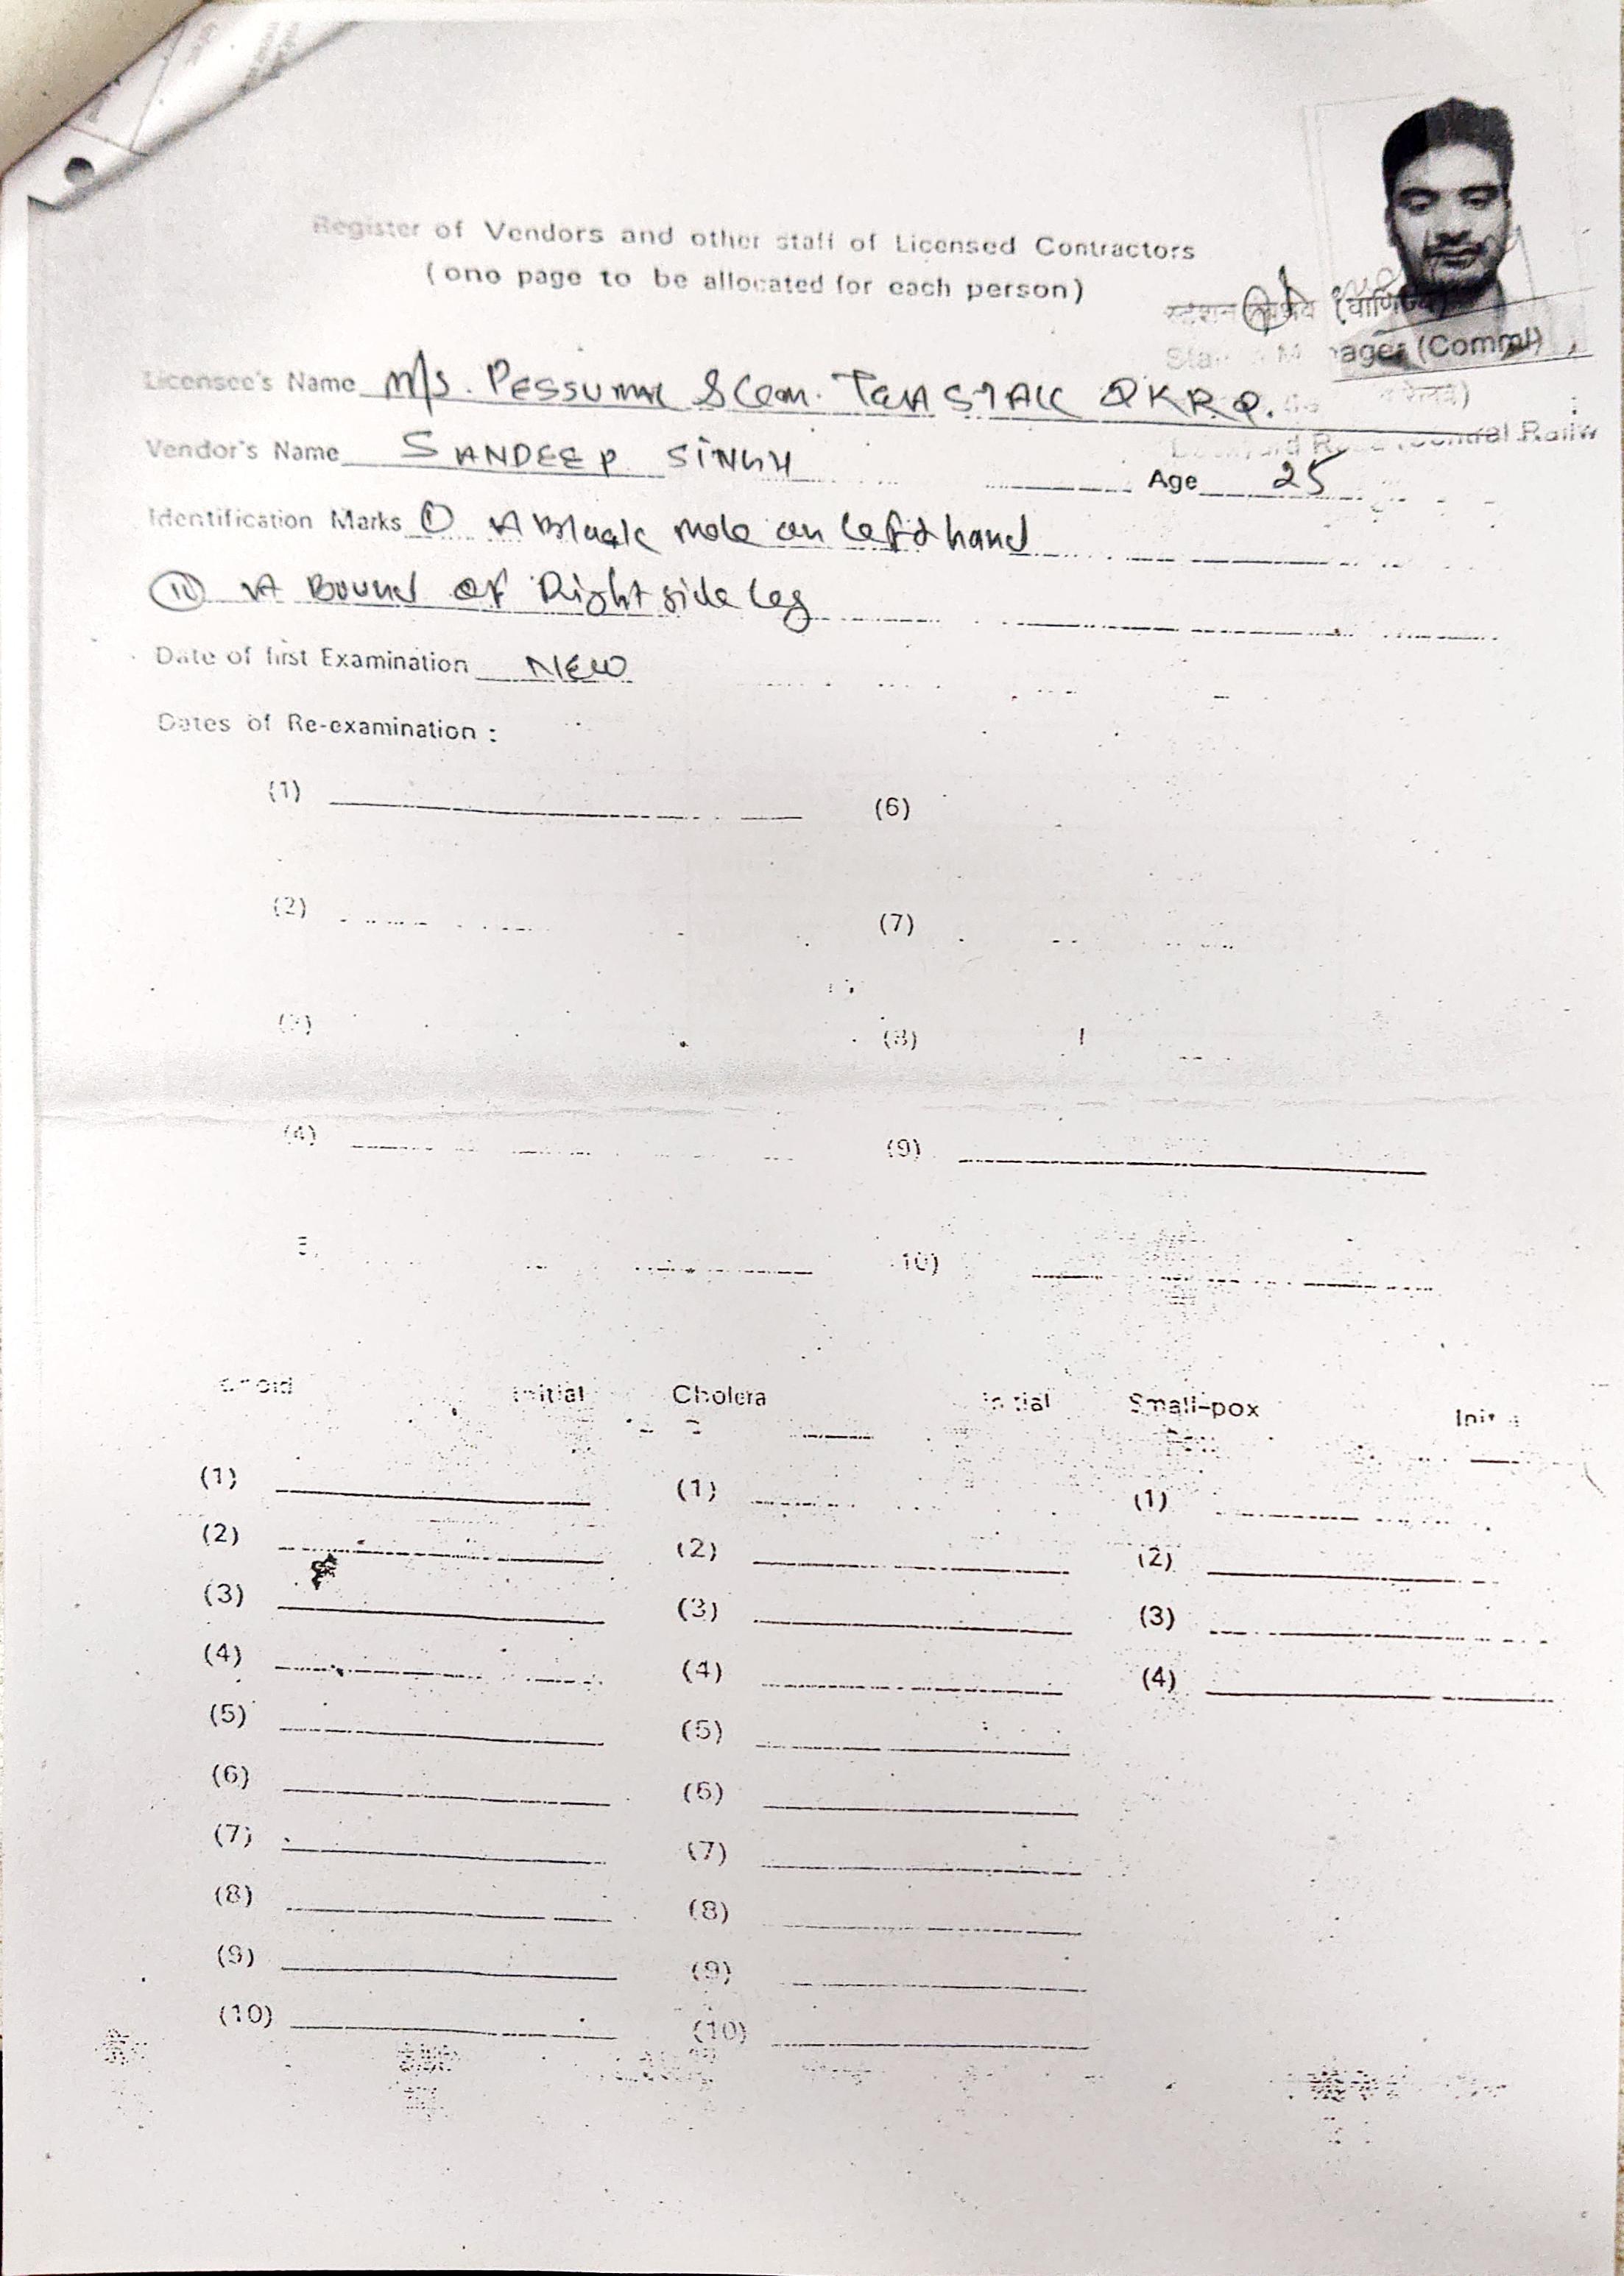 Register of Vendors and other staff of Licensed Contractors
(one page to be allocated for each person)
स्टेशन (वाणिज्य)
Manager (Comml)
Licensee's Name M/s. PESSUMAL & Com. TEA STALL DKRD.
Central Railw
Vendor's Name SANDEEP SINGH Age 25
Identification Marks (i) A Black mole on left hand
(ii) A Bound of Right side leg
Date of first Examination NEW
Dates of Re-examination :
(1) (6)
(2) (7)
(3) (8)
(4) (9)
5. 10)
Initial Cholera Initial Small-pox
(1) (1) (1)
(2) (2) (2)
(3) (3) (3)
(4) (4) (4)
(5) (5)
(6) (6)
(7) (7)
(8) (8)
(9) (9)
(10) (10)